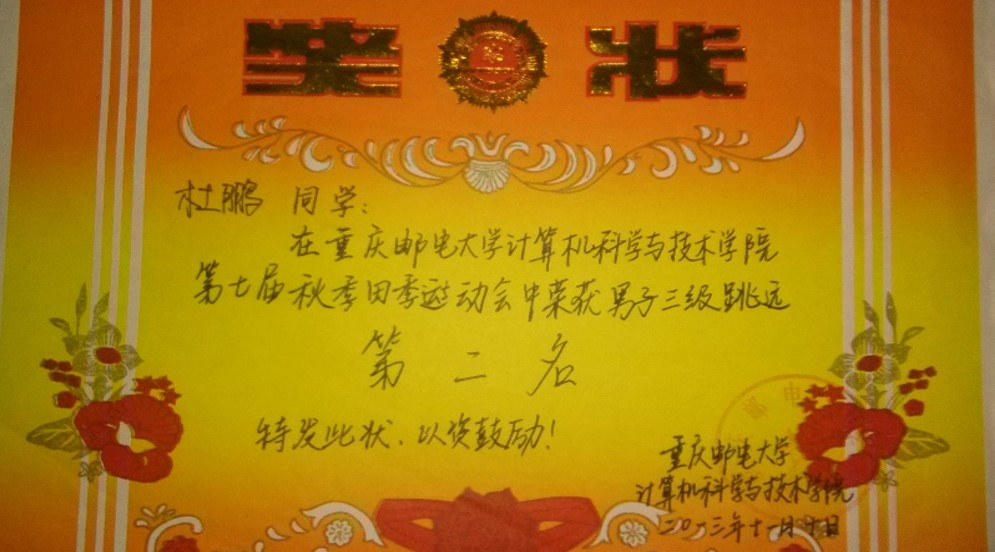 奖状
杜鹏 同学：
在重庆邮电大学计算机科学与技术学院
第七届秋季田季运动会中荣获男子三级跳远
第二名
特发此状、以资鼓励！
重庆邮电大学
计算机科学与技术学院
二〇〇三年十一月十日